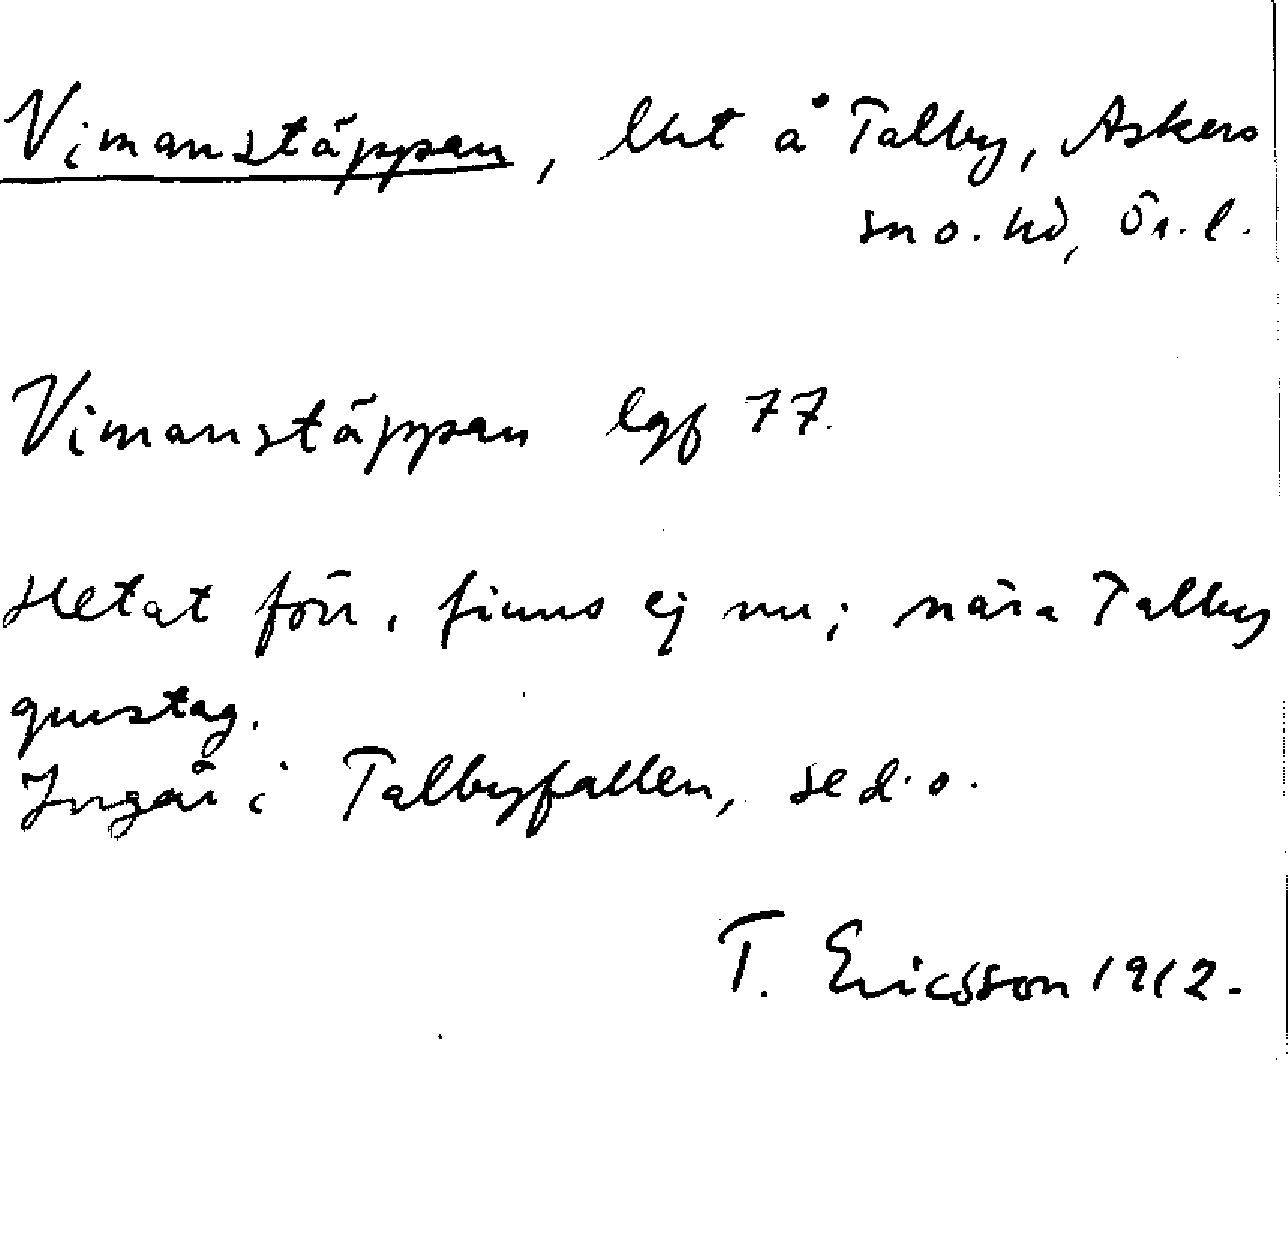 Vimanstäppan, lht å Talby, Askers
sn o. hd, Ör. l.
Vimanstäppan lgf 77.
Hetat förr, finns ej nu; nära Talby
grustag.
Ingår i Talbyfallen, se d. o.
T. Ericsson 1912.